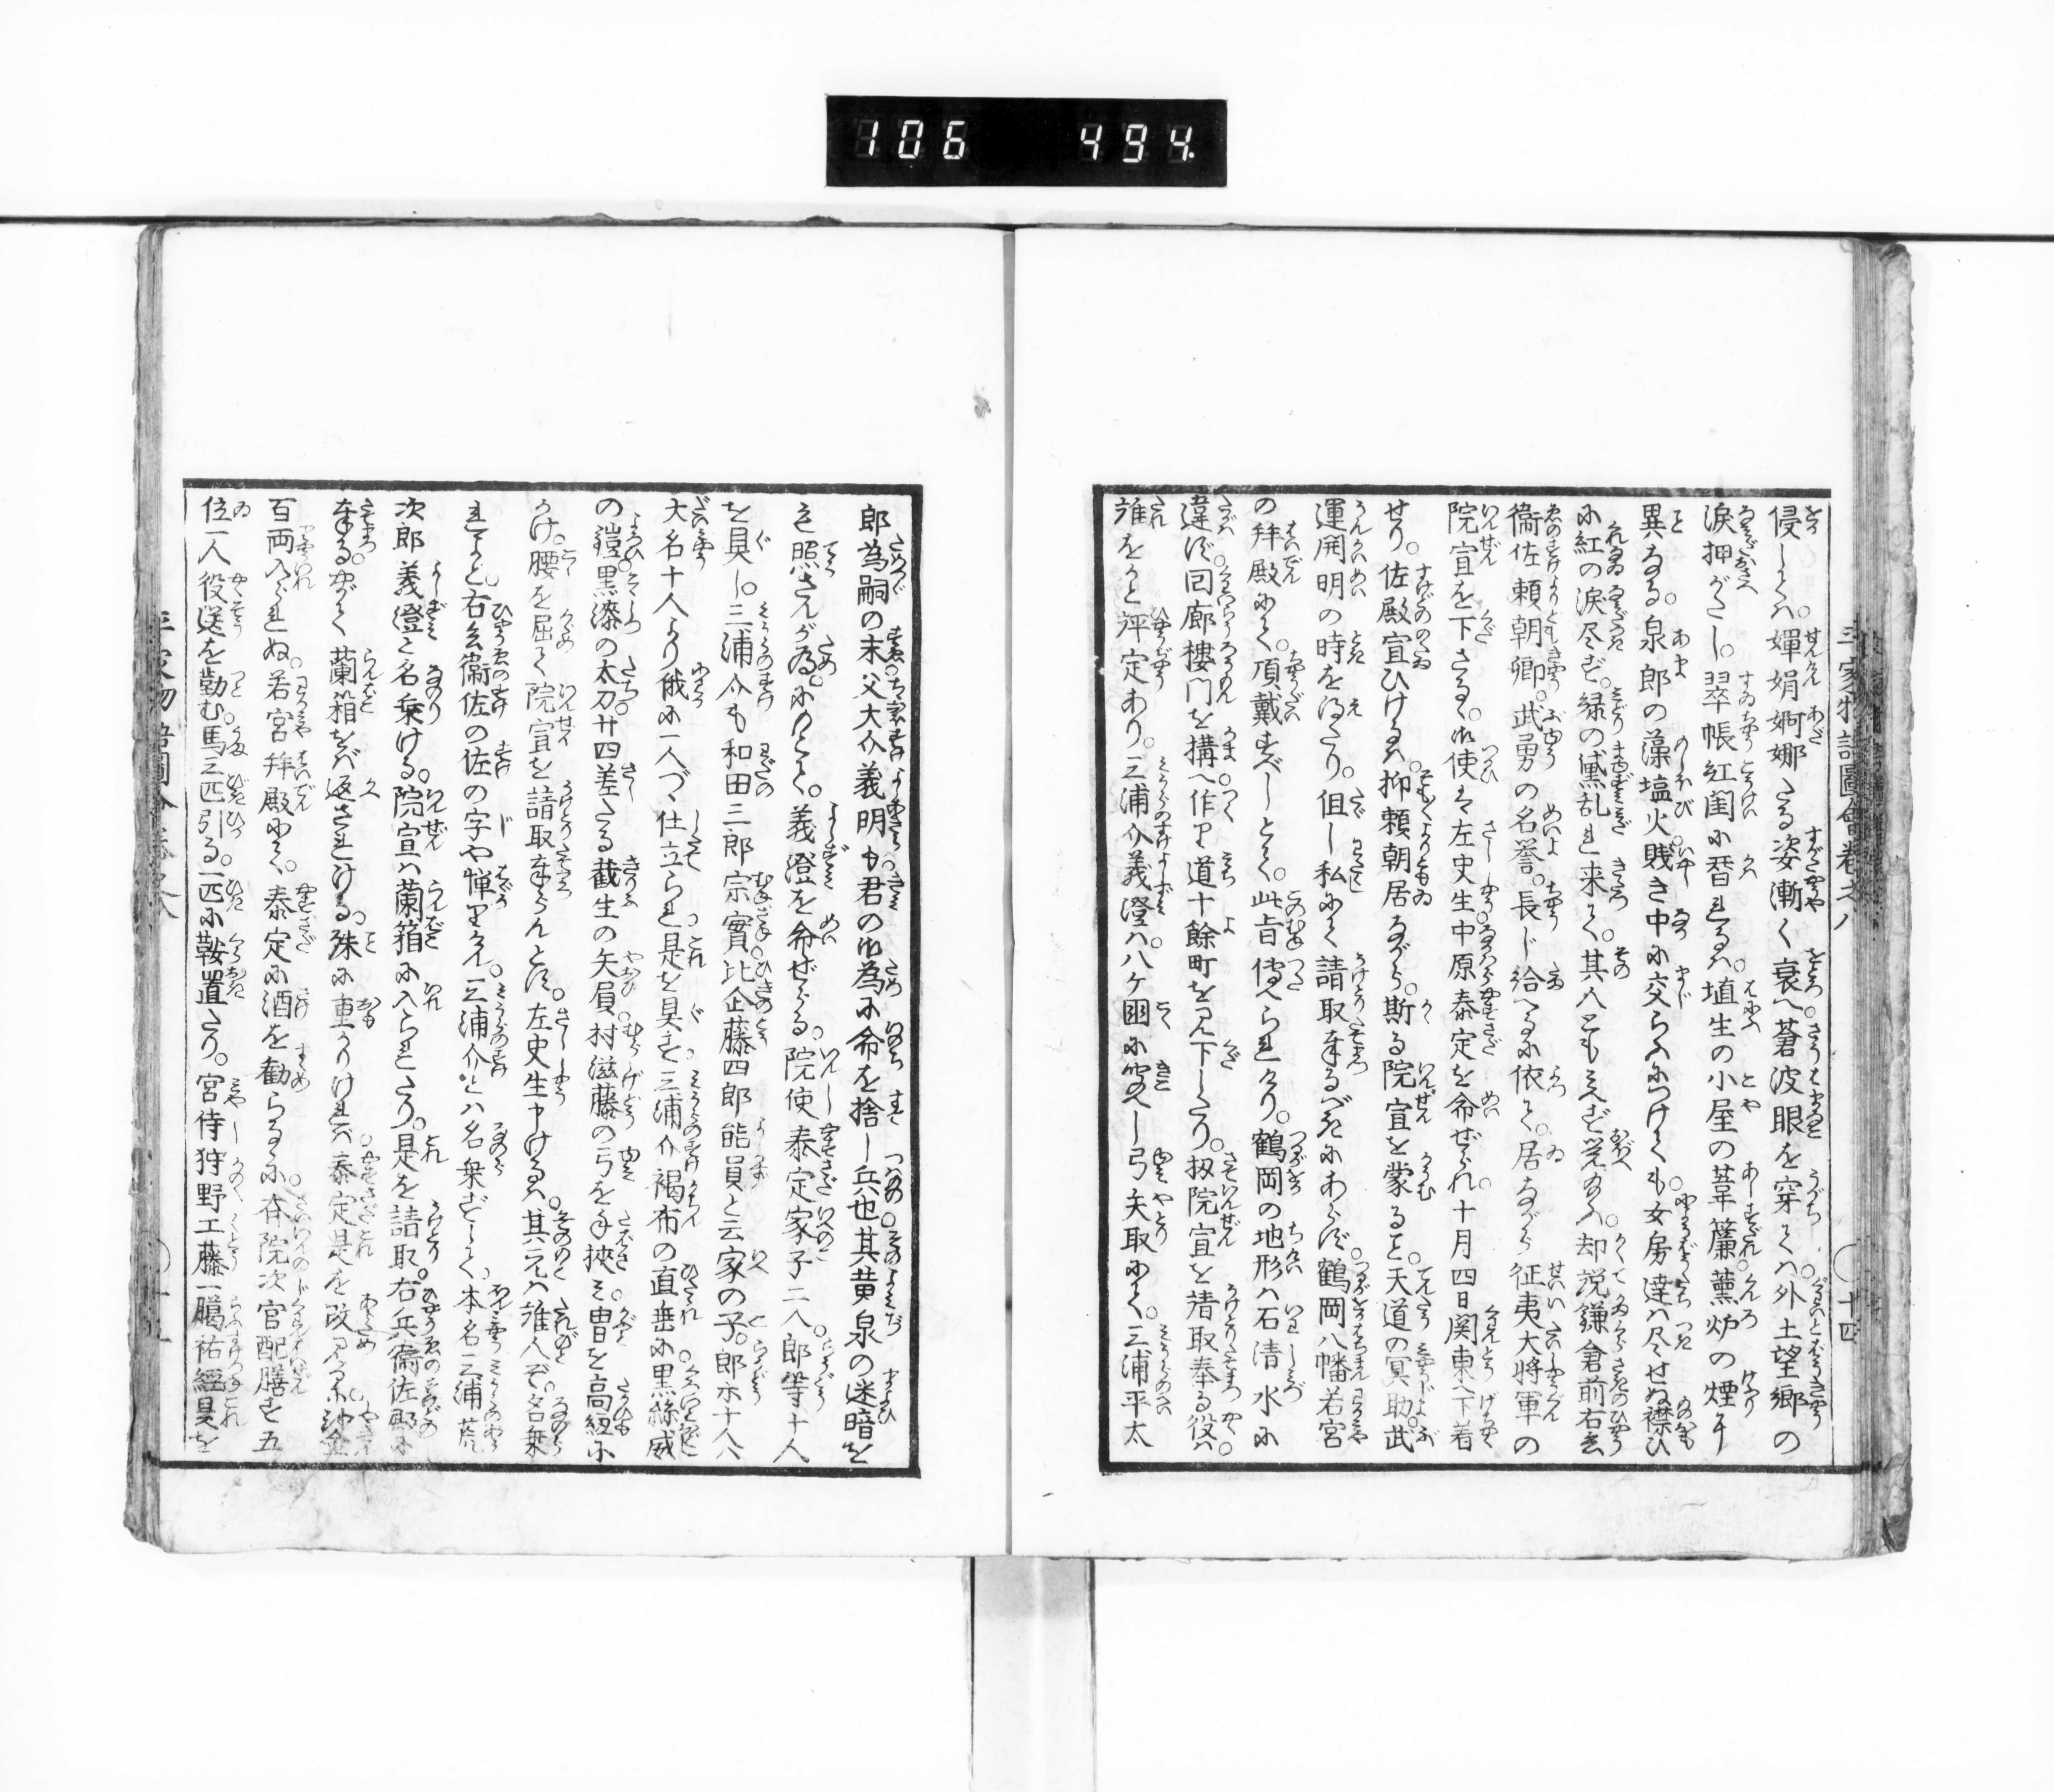 106 494
侵しては。嬋娟婀娜たる姿漸く衰へ。蒼波眼を穿ては外土望郷の
涙押がたし。翠帳紅閨に替れるは。埴生の小屋の葦簾。薫炉の煙に
異なる。泉郎の藻塩火。賎き中に交らふにつけても。女房達は尽せぬ襟ひ
に紅の涙尽ず。緑の黛乱れ来て。其人とも見へず覚給ふ。却説鎌倉前右兵
衛佐頼朝卿。武勇の名誉。長じ給へるに依て。居ながら征夷大将軍の
院宣を下さるゝ。御使は左史生中原泰定を命ぜられ。十月四日関東へ下着
せり。佐殿宣ひけるは。抑頼朝居ながら。斯る院宣を蒙ること。天道の冥助。武
運開明の時を得たり。但し私にて請取奉るべきにあらず。鶴岡八幡若宮
の拜殿にて。頂戴すべしとて。此旨傳へられたり。鶴岡の地形は石清水に
違ず。回廊樓門を搆へ。作り道十餘町を見下したり。扨院宣を請取奉る役は。
誰をかと評定あり。三浦介義澄は。八ケ国に聞へし弓矢取にて。三浦平太
平家物語圖會卷之八
十四
郎爲嗣の末。父大介義明も。君の御為に命を捨し兵也。其黄泉の迷暗を
も照さんが為。にとて。義澄を命ぜらる。院使泰定家子二人。郎等十人
を具し。三浦介も和田三郎宗實。比企藤四郎能員と云家の子。郎等十人は
大名十人より俄に一人づゝ仕立られ。是を具す。三浦介褐布の直垂に。黒絲威
の鎧。黒漆の太刀。廿四差たる截生の矢負。村滋藤の弓を手挾み。冑を高紐に
かけ。腰を屈て院宣を請取奉らんとす。左史生申けるは。其元は誰人ぞ。名乗
れよと。右兵衛佐の佐の字や憚りけん。三浦介とは名乗ずして。本名三浦荒
次郎義澄と名乗ける。院宣は蘭箱に入られたり。是を請取。右兵衛佐殿に
奉る。やがて蘭箱をば返されける。殊に重かりければ。泰定是を改見るに沙金
百両入られぬ。若宮拜殿にて。泰定に酒を勧らるゝに。斉院次官配膳す。五
位一人役送を勤む。馬三匹引る。一匹に鞍置たり。宮侍狩野工藤一臈祐経是を